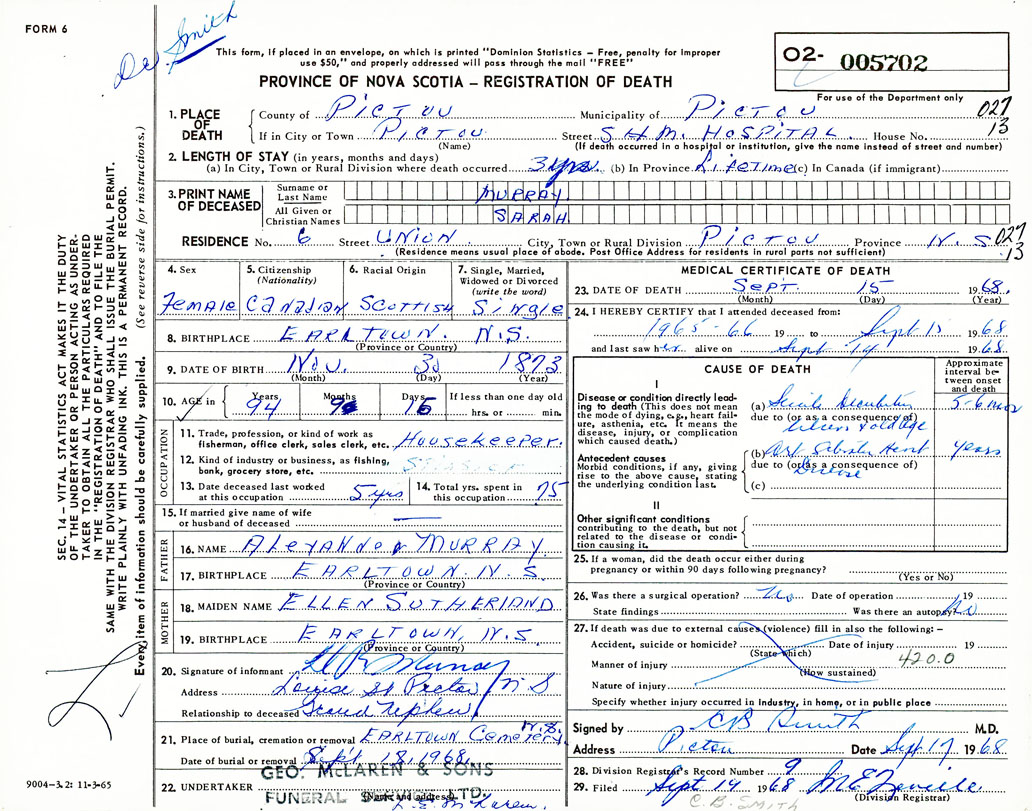 FORM 6
De Smith
This form, if placed in an envelope, on which is printed "Dominion Statistics – Free, penalty for improper
use $50," and properly addressed will pass through the mail "FREE"
PROVINCE OF NOVA SCOTIA – REGISTRATION OF DEATH
02- 005702
For use of the Department only
1. PLACE OF DEATH
County of PICTOU Municipality of PICTOU 027
If in City or Town PICTOU Street S.H.M. HOSPITAL House No. 13
(Name) (If death occurred in a hospital or institution, give the name instead of street and number)
2. LENGTH OF STAY (in years, months and days)
(a) In City, Town or Rural Division where death occurred 3 yrs. (b) In Province Lifetime (c) In Canada (if immigrant)
3. PRINT NAME OF DECEASED
Surname or Last Name MURRAY
All Given or Christian Names SARAH
RESIDENCE No. 6 Street UNION City, Town or Rural Division PICTOU Province N.S. 027 13
(Residence means usual place of abode. Post Office Address for residents in rural parts not sufficient)
4. Sex Female
5. Citizenship (Nationality) Canadian
6. Racial Origin Scottish
7. Single, Married, Widowed or Divorced (write the word) Single
8. BIRTHPLACE EARLTOWN. N.S.
(Province or Country)
9. DATE OF BIRTH Nov. 30 1873
(Month) (Day) (Year)
10. AGE in Years 94 Months 9 Days 16 If less than one day old
hrs. or min.
OCCUPATION
11. Trade, profession, or kind of work as
fisherman, office clerk, sales clerk, etc. Housekeeper.
12. Kind of industry or business, as fishing,
bank, grocery store, etc.
13. Date deceased last worked
at this occupation 5 yrs
14. Total yrs. spent in
this occupation 75
15. If married give name of wife
or husband of deceased —
FATHER
16. NAME Alexander MURRAY
17. BIRTHPLACE EARLTOWN. N.S.
(Province or Country)
MOTHER
18. MAIDEN NAME ELLEN SUTHERLAND
19. BIRTHPLACE EARLTOWN, N.S.
(Province or Country)
20. Signature of informant Murray
Address Louise St Pictou N S
Relationship to deceased Grand Nephew
21. Place of burial, cremation or removal EARLTOWN Cemetery N.S.
Date of burial or removal Sept 18, 1968
22. UNDERTAKER GEO. McLAREN & SONS
FUNERAL LTD.
(Name and address)
MEDICAL CERTIFICATE OF DEATH
23. DATE OF DEATH Sept. 15 1968.
(Month) (Day) (Year)
24. I HEREBY CERTIFY that I attended deceased from:
1965-66 19 to Sept 15 1968
and last saw her alive on Sept 14 1968.
CAUSE OF DEATH
Approximate interval between onset and death
I
Disease or condition directly leading to death (This does not mean the mode of dying, e.g., heart failure, asthenia, etc. It means the disease, injury, or complication which caused death.)
(a) Senile
due to (or as a consequence of)
old age
Antecedent causes
Morbid conditions, if any, giving rise to the above cause, stating the underlying condition last.
(b) Heart years
due to (or as a consequence of)
Disease
(c)
II
Other significant conditions
contributing to the death, but not related to the disease or condition causing it.
25. If a woman, did the death occur either during
pregnancy or within 90 days following pregnancy?
(Yes or No)
26. Was there a surgical operation? No Date of operation 19
State findings Was there an autopsy? No
27. If death was due to external causes (violence) fill in also the following: –
Accident, suicide or homicide? Date of injury 19
(State which) 420.0
Manner of injury
(How sustained)
Nature of injury
Specify whether injury occurred in industry, in home, or in public place
Signed by C B Smith M.D.
Address Pictou Date Sept. 17 1968
28. Division Registrar's Record Number 9
29. Filed Sept 19 1968
(Division Registrar)
C. B. SMITH
SEC. 14 – VITAL STATISTICS ACT MAKES IT THE DUTY
OF THE UNDERTAKER OR PERSON ACTING AS UNDER-
TAKER TO OBTAIN ALL THE PARTICULARS REQUIRED
IN THE "REGISTRATION OF DEATH" AND TO FILE THE
SAME WITH THE DIVISION REGISTRAR WHO SHALL ISSUE THE BURIAL PERMIT.
WRITE PLAINLY WITH UNFADING INK. THIS IS A PERMANENT RECORD.
Every item of information should be carefully supplied. (See reverse side for instructions.)
9004-3.2: 11-3-65